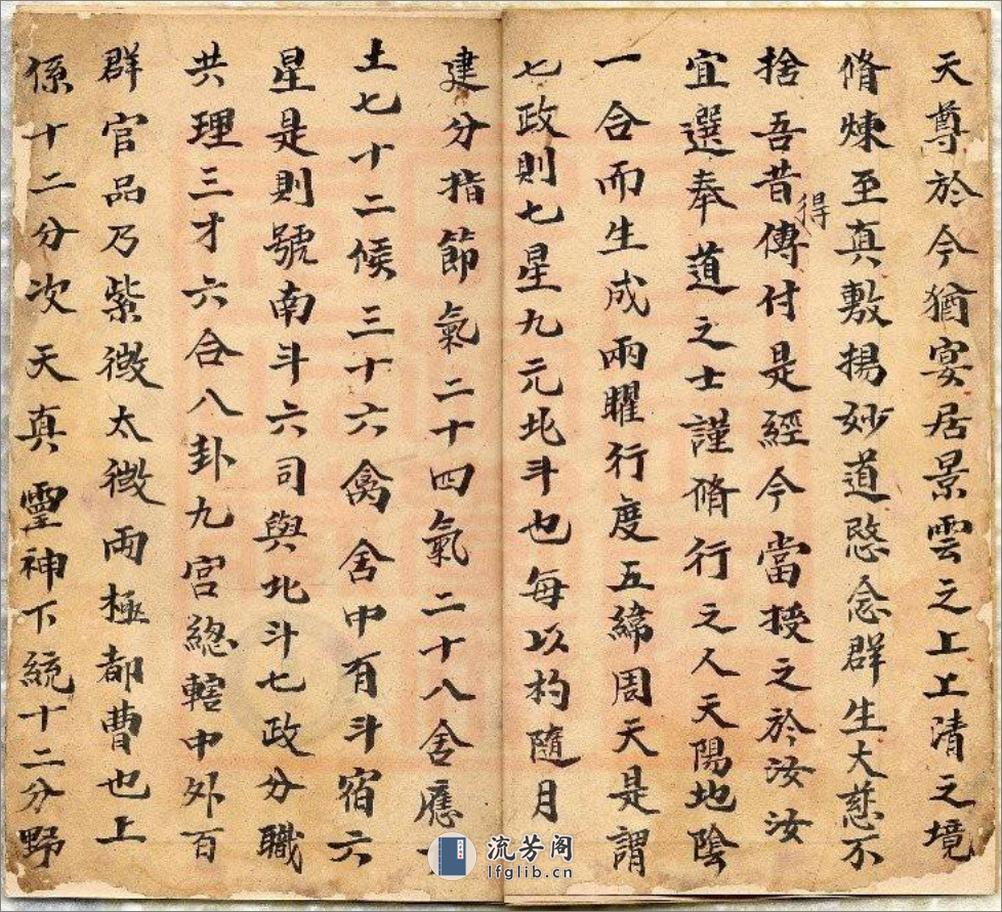 天尊於今猶宴居景雲之上上清之境
脩煉至真敷揚妙道愍念群生大慈不
捨吾昔得傳付是經今當授之於汝汝
宜選奉道之士謹脩行之人天陽地陰
一合而生成兩曜行度五緯周天是謂
七政則七星九元北斗也每以杓隨月
建分指節氣二十四氣二十八舍應
土七十二候三十六禽舍中有斗宿六
星是則號南斗六司與北斗七政分職
共理三才六合八卦九宮總轄中外百
群官品乃紫微太微兩極都曹也上
係十二分次天真靈神下統十二分野
流芳阁
lfglib.cn